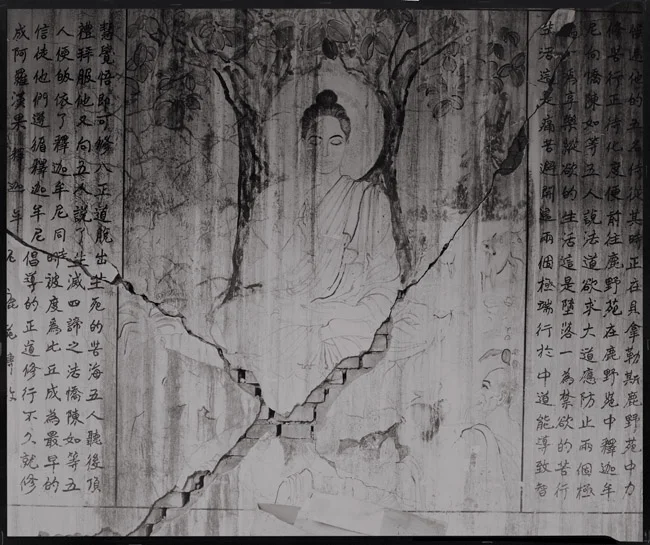 隨從他的五名侍從其時正在貝拿勒斯鹿野苑中力
修苦行正待化度便前往鹿野苑在鹿野苑中釋迦牟
尼向憍陳如等五人說法道欲求大道應防止兩個極
為享樂縱欲的生活這是墮落一為禁欲的苦行
生活這是痛苦避開這兩個極端行於中道能導致智
慧覺悟即可修八正道脫出生死的苦海五人聽後頂
禮拜服他又向五人說了生滅四諦之法憍陳如等五
人便皈依了釋迦牟尼同時被度為比丘成為最早的
信徒他們遵循釋迦牟尼倡導的正道修行不久就修
成阿羅漢果釋迦牟尼鹿苑